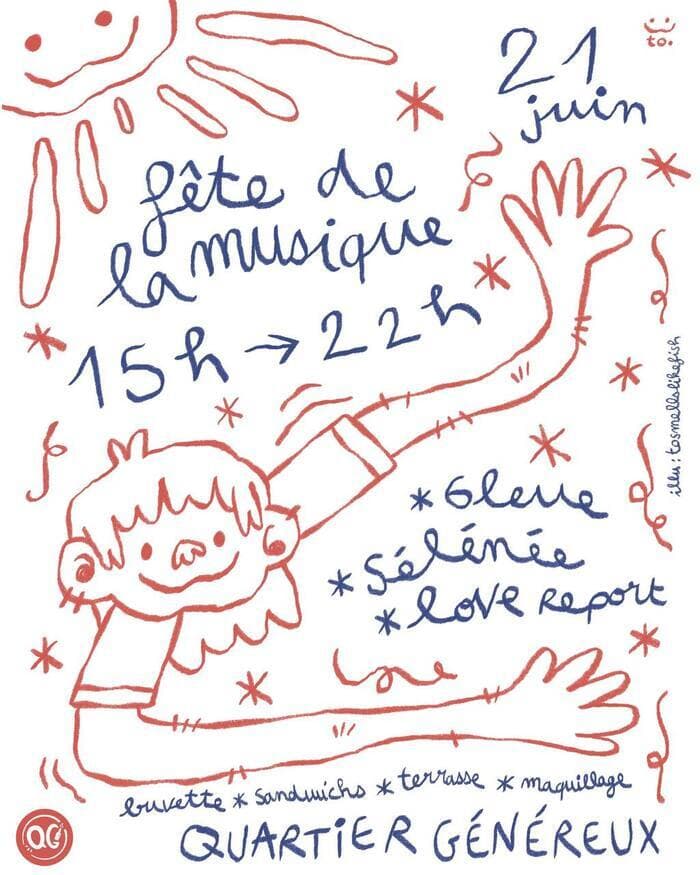 to.
21
juin
fête de
la musique
15h → 22h
illu: tosmellslikefish
* Gleue
* Sélénée
* love Report
buvette * sandwichs * terrasse * maquillage
QG
QUARTIER GÉNÉREUX